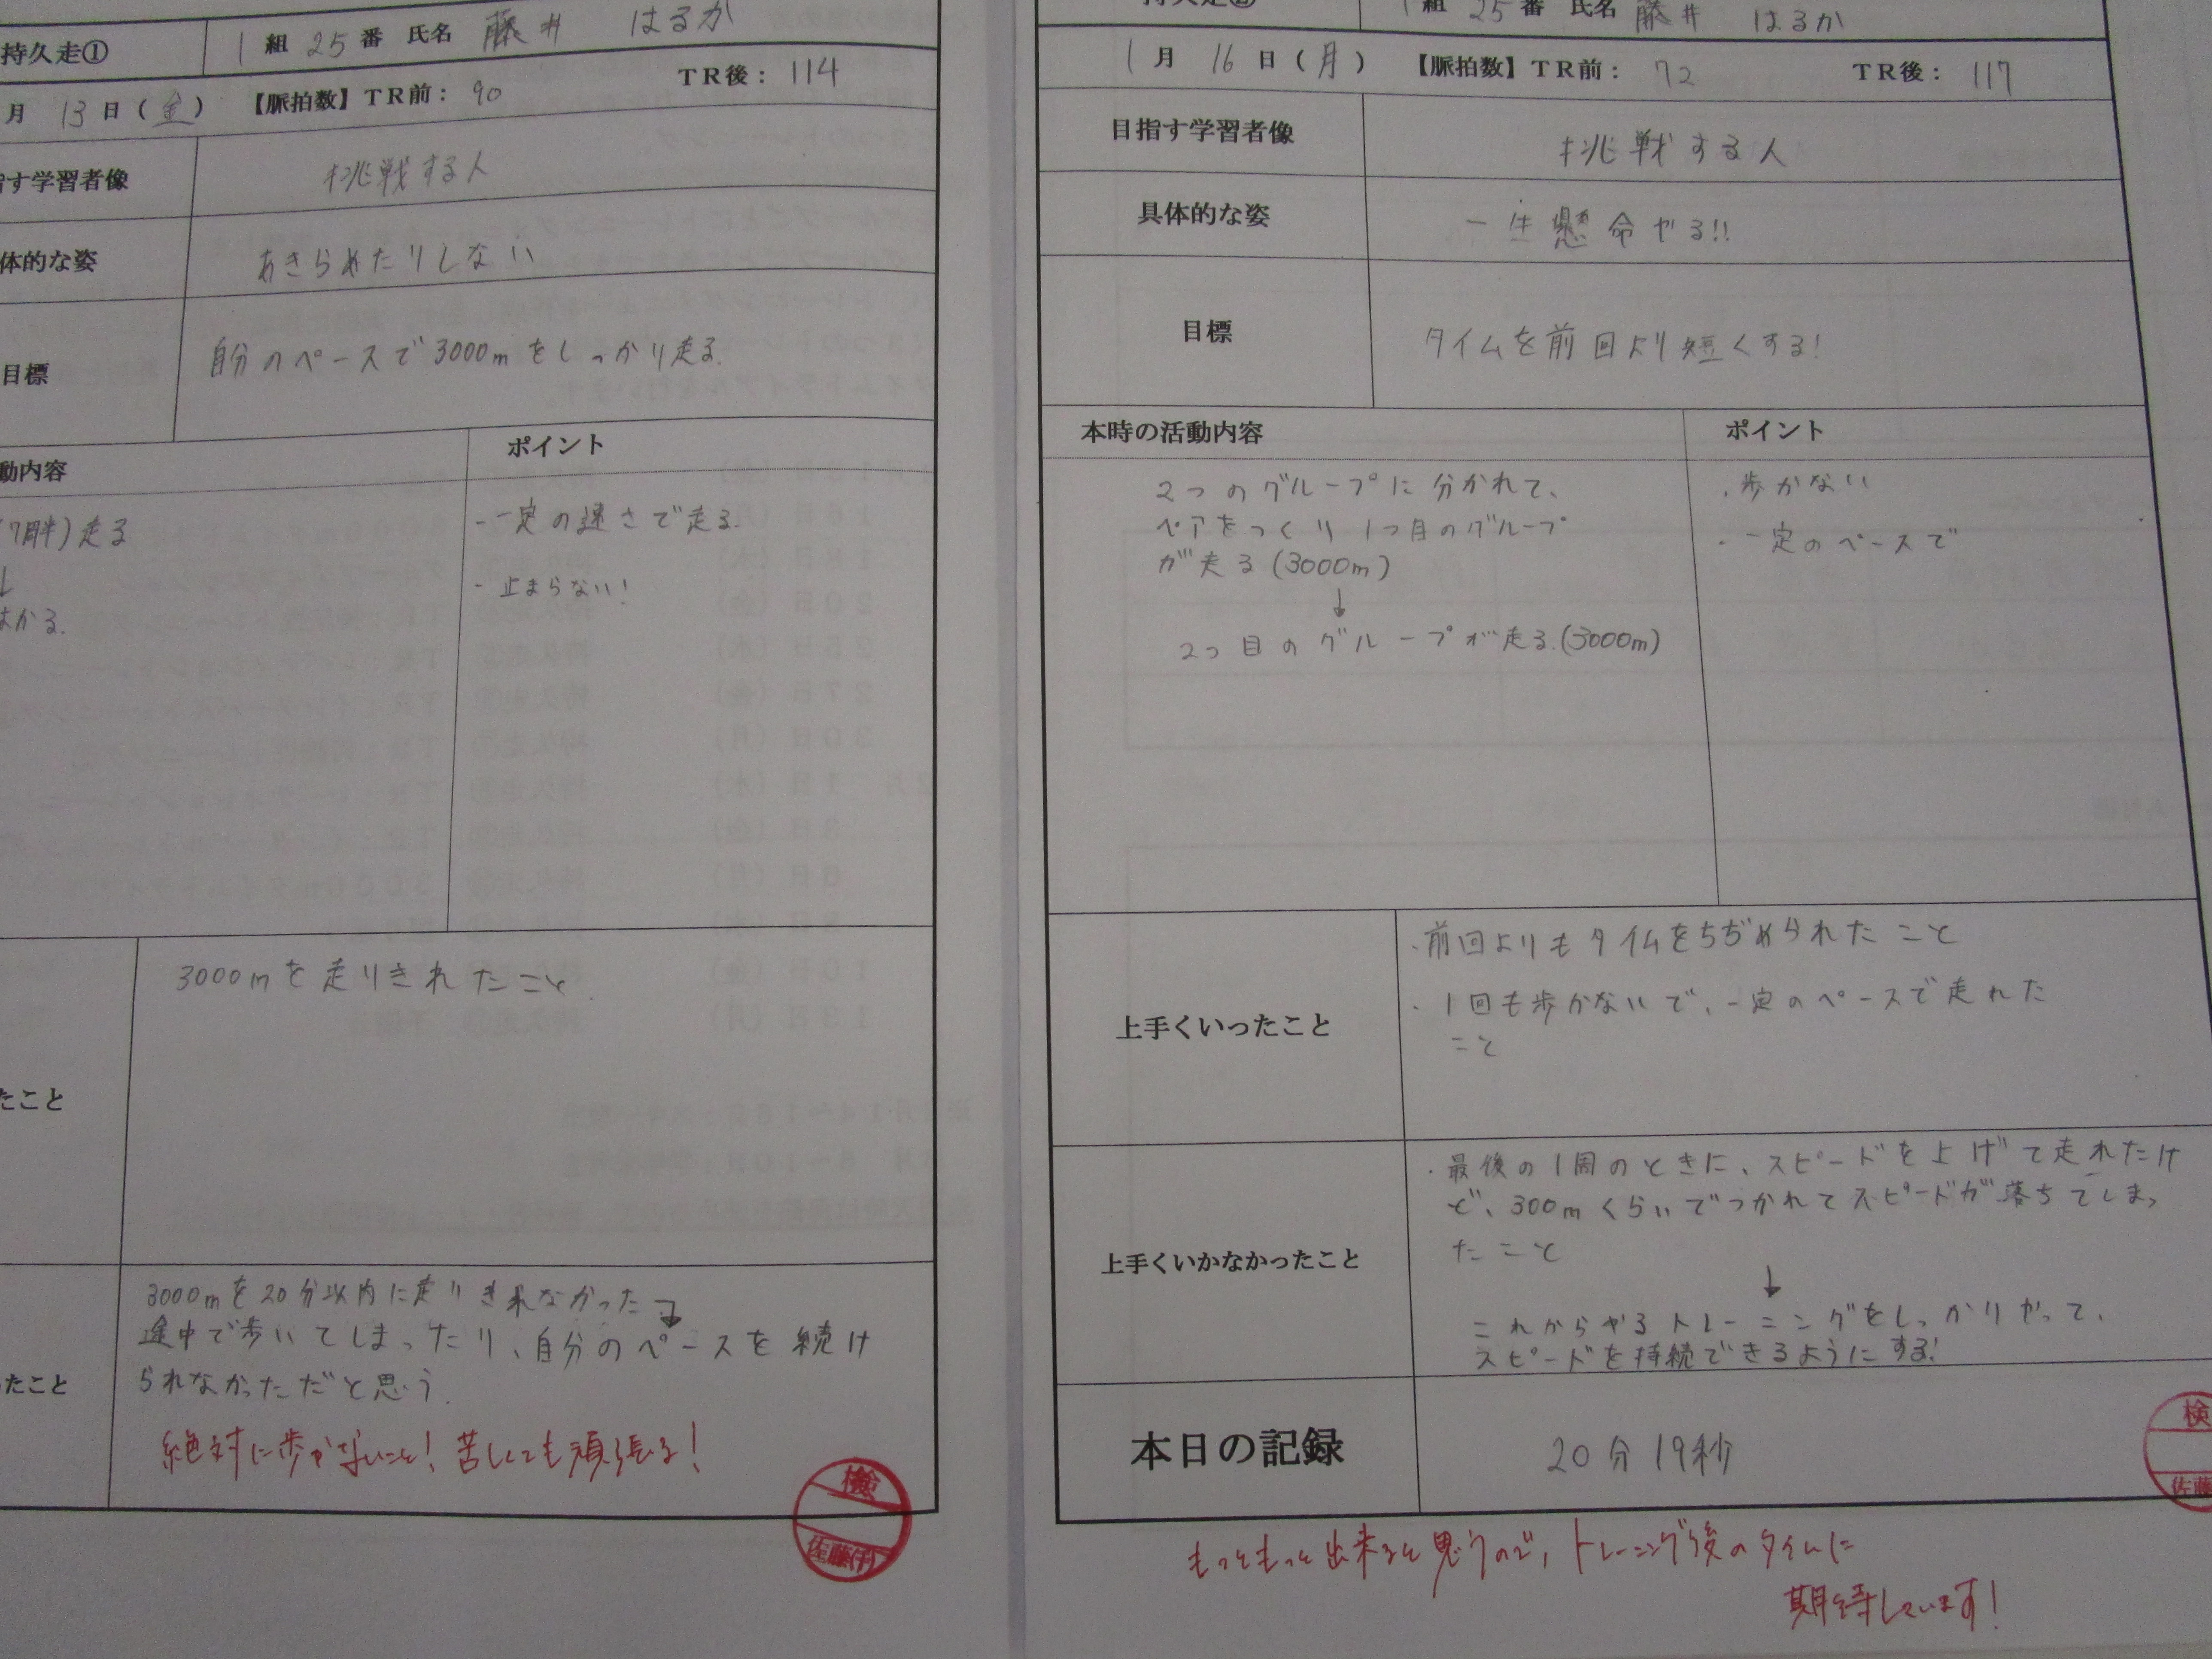 持久走① 1組 25番 氏名 藤井 はるか
月 13日(金) 【脈拍数】TR前: 90 TR後: 114
す学習者像 挑戦する人
体的な姿 あきらめたりしない
目標 自分のペースで3000mをしっかり走る.
動内容 ポイント
走る
はかる.
・一定の速さで走る.
・止まらない!
たこと 3000mを走りきれたこと.
たこと 3000mを20分以内に走りきれなかった
途中で歩いてしまったり、自分のペースを続け
られなかっただと思う.
絶対に歩かないこと!苦しくても頑張る!
検
佐藤(伊)
持久走② 1組 25番 氏名 藤井 はるか
1月 16日(月) 【脈拍数】TR前: 72 TR後: 117
目指す学習者像 挑戦する人
具体的な姿 一生懸命やる!!
目標 タイムを前回より短くする!
本時の活動内容 ポイント
2つのグループに分かれて、
ペアをつくり 1つ目のグループ
が走る(3000m)
↓
2つ目のグループが走る.(3000m)
・歩かない
・一定のペースで
上手くいったこと
・前回よりもタイムをちぢめられたこと
・1回も歩かないで、一定のペースで走れた
こと
上手くいかなかったこと
・最後の1周のときに、スピードを上げて走れたけ
ど、300mくらいでつかれてスピードが落ちてしまっ
たこと
↓
これからやるトレーニングをしっかりやって、
スピードを持続できるようにする!
本日の記録 20分19秒
検
佐藤
もっともっと出来ると思うので、トレーニング後のタイムに
期待しています!